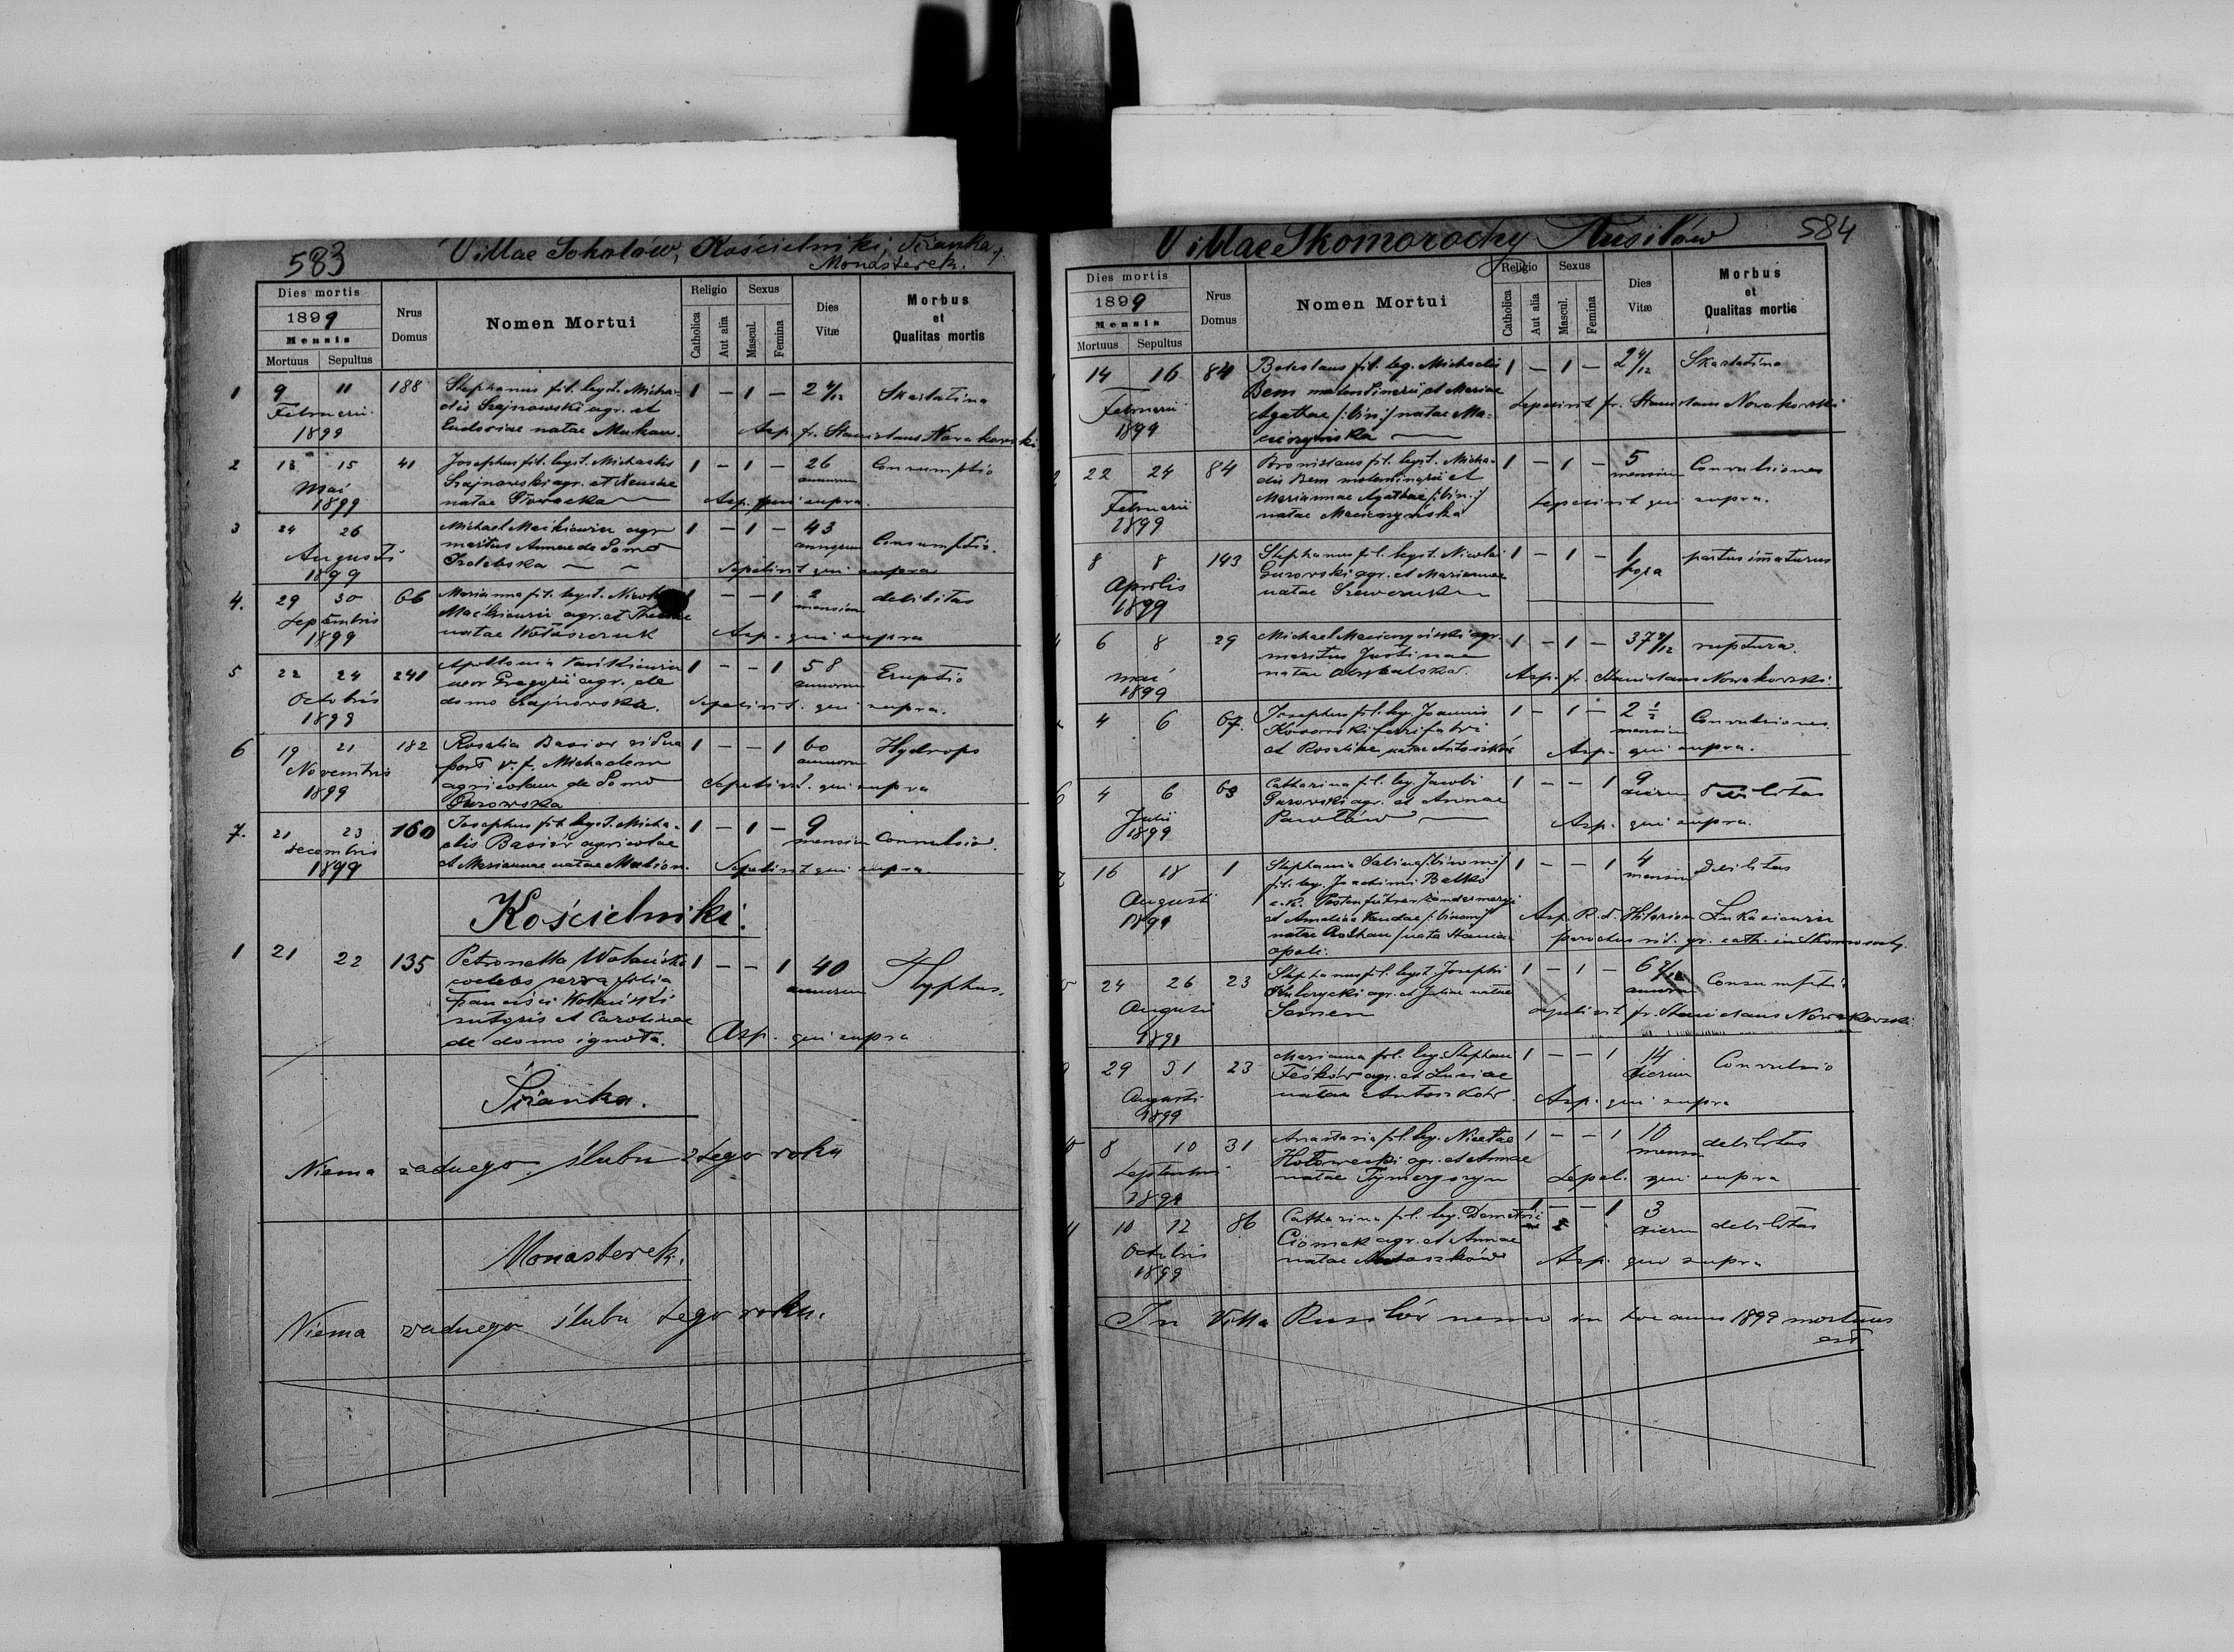 583
Villae Sokołów, Kościelniki, Ścianka,
Monasterek.
Dies mortis
1899
Mensis
Mortuus Sepultus
Nrus
Domus
Nomen Mortui
Religio
Catholica
Aut alia
Sexus
Mascul.
Femina
Dies
Vitæ
Morbus
et
Qualitas mortis
1 9 11 188 Stephanus fil. legit. Micha- 1 – 1 – 2 4/12 Skarlatina
Februarii
elis Szajnowski agr. et
1899
Eudoxiae natae Mukan.
Asp. fr. Stanislaus Nowakowski
2 13 15 41 Josephus fil. legit. Michaelis 1 – 1 – 26 Consumptio
annorum
Mai
Szajnowski agr. et
1899
natae Słowacka
Asp. qui supra.
3 24 26 Michael agr 1 – 1 – 43 Consumptio.
annorum
Augusti
maritus Annae de domo
1899
Sepelivit qui supra
4. 29 30 66 Marianna fil. legit. 1 – – 1 2 debilitas
mensium
Septembris
agr. et
1899
natae Wołoszczuk
Asp. qui supra
5 22 24 241 Apollonia 1 – – 1 58 Eruptio
annorum
Octobris
uxor Gregorii agr. de
1899
domo Szajnowska.
Sepelivit qui supra.
6 19 21 182 Rosalia Basior vidua 1 – – 1 60 Hydrops
annorum
Novembris
post v. f. Michaelem
1899
agricolam de domo
Gurowska
Sepelivit qui supra
7. 21 23 160 Josephus fil. legit. Micha- 1 – 1 – 9 Convulsio.
mensium
decembris
elis Basiór agricolae
1899
et Mariannae natae
Sepelivit qui supra.
Kościelniki:
1 21 22 135 Petronella 1 – – 1 40 Thyphus.
annorum
coelebs serva filia
Francisci
sutoris et Carolinae
de domo ignota.
Asp. qui supra
Ścianka.
Niema żadnego ślubu z tego roku
Monasterek.
Niema żadnego ślubu tego roku.
584
Villae Skomorochy Rusiłów
Dies mortis
1899
Mensis
Mortuus Sepultus
Nrus
Domus
Nomen Mortui
Religio
Catholica
Aut alia
Sexus
Mascul.
Femina
Dies
Vitæ
Morbus
et
Qualitas mortis
14 16 84 Boleslaus fil. leg. Michaelis 1 – 1 – 2 4/12 Skarlatina
Februarii
Bem molendinarii et Mariae
1899
Agathae /:bin:/ natae Ma-
Sepelivit fr. Stanislaus Nowakowski
22 24 84 Bronislaus fil. legit. Micha- 1 – 1 – 5 Convulsiones
mensium
Februarii
elis Bem molendinarii et
1899
Mariannae Agathae /:bin:/
natae
Sepelivit qui supra.
8 8 143 Stephanus fil. legit. Nicolai 1 – 1 – 1 partus immaturus
hora
Aprilis
Gurowski agr. et Mariannae
1899
natae Szewczuk
6 8 29 Michael agr. 1 – 1 – 37 ruptura.
mai
maritus Justinae
1899
natae
Asp. fr. Stanislaus Nowakowski.
4 6 67. Josephus fil. leg. Joannis 1 – 1 – 2 1/2 Convulsiones
mensium
ferrifabri
et Rosaliae natae Antoszków
Asp. qui supra.
4 6 63 Catharina fil. leg. Jacobi 1 – – 1 9 debilitas
dierum
Julii
Gurowski agr. et Annae
1899
Pawłów
Asp. qui supra.
16 18 1 Stephania Sabina /:binom:/ 1 – – 1 4 Debilitas
mensium
Augusti
fil. leg. Joachimi
1899
et Amaliae Vandae /:binom:/
Asp. R. d. Hilarion Łukasiewicz
parochus rit. gr. cath. in Skomorochy.
24 26 23 Stephanus fil. legit. Josephi 1 – 1 – 6 Consumptio
annorum
Augusti
agr. et Juliae natae
1899
Semen
Sepelivit fr. Stanislaus Nowakowski
29 31 23 Marianna fil. leg. Stephani 1 – – 1 14 Convulsio
dierum
Augusti
Feśków agr. et Luciae
1899
natae Antoszków
Asp. qui supra
8 10 31 Anastasia fil. leg. Nicetae 1 – – 1 10 debilitas
mensium
Septembris
agr. et Annae
1899
natae
Sepel. qui supra
10 12 86 Catharina fil. leg. Demetrii 1 – – 1 3 debilitas
dierum
Octobris
agr. et Annae
1899
natae Antoszków
Asp. qui supra
In Villa Rusiłów nemo in hoc anno 1899 mortuus
est